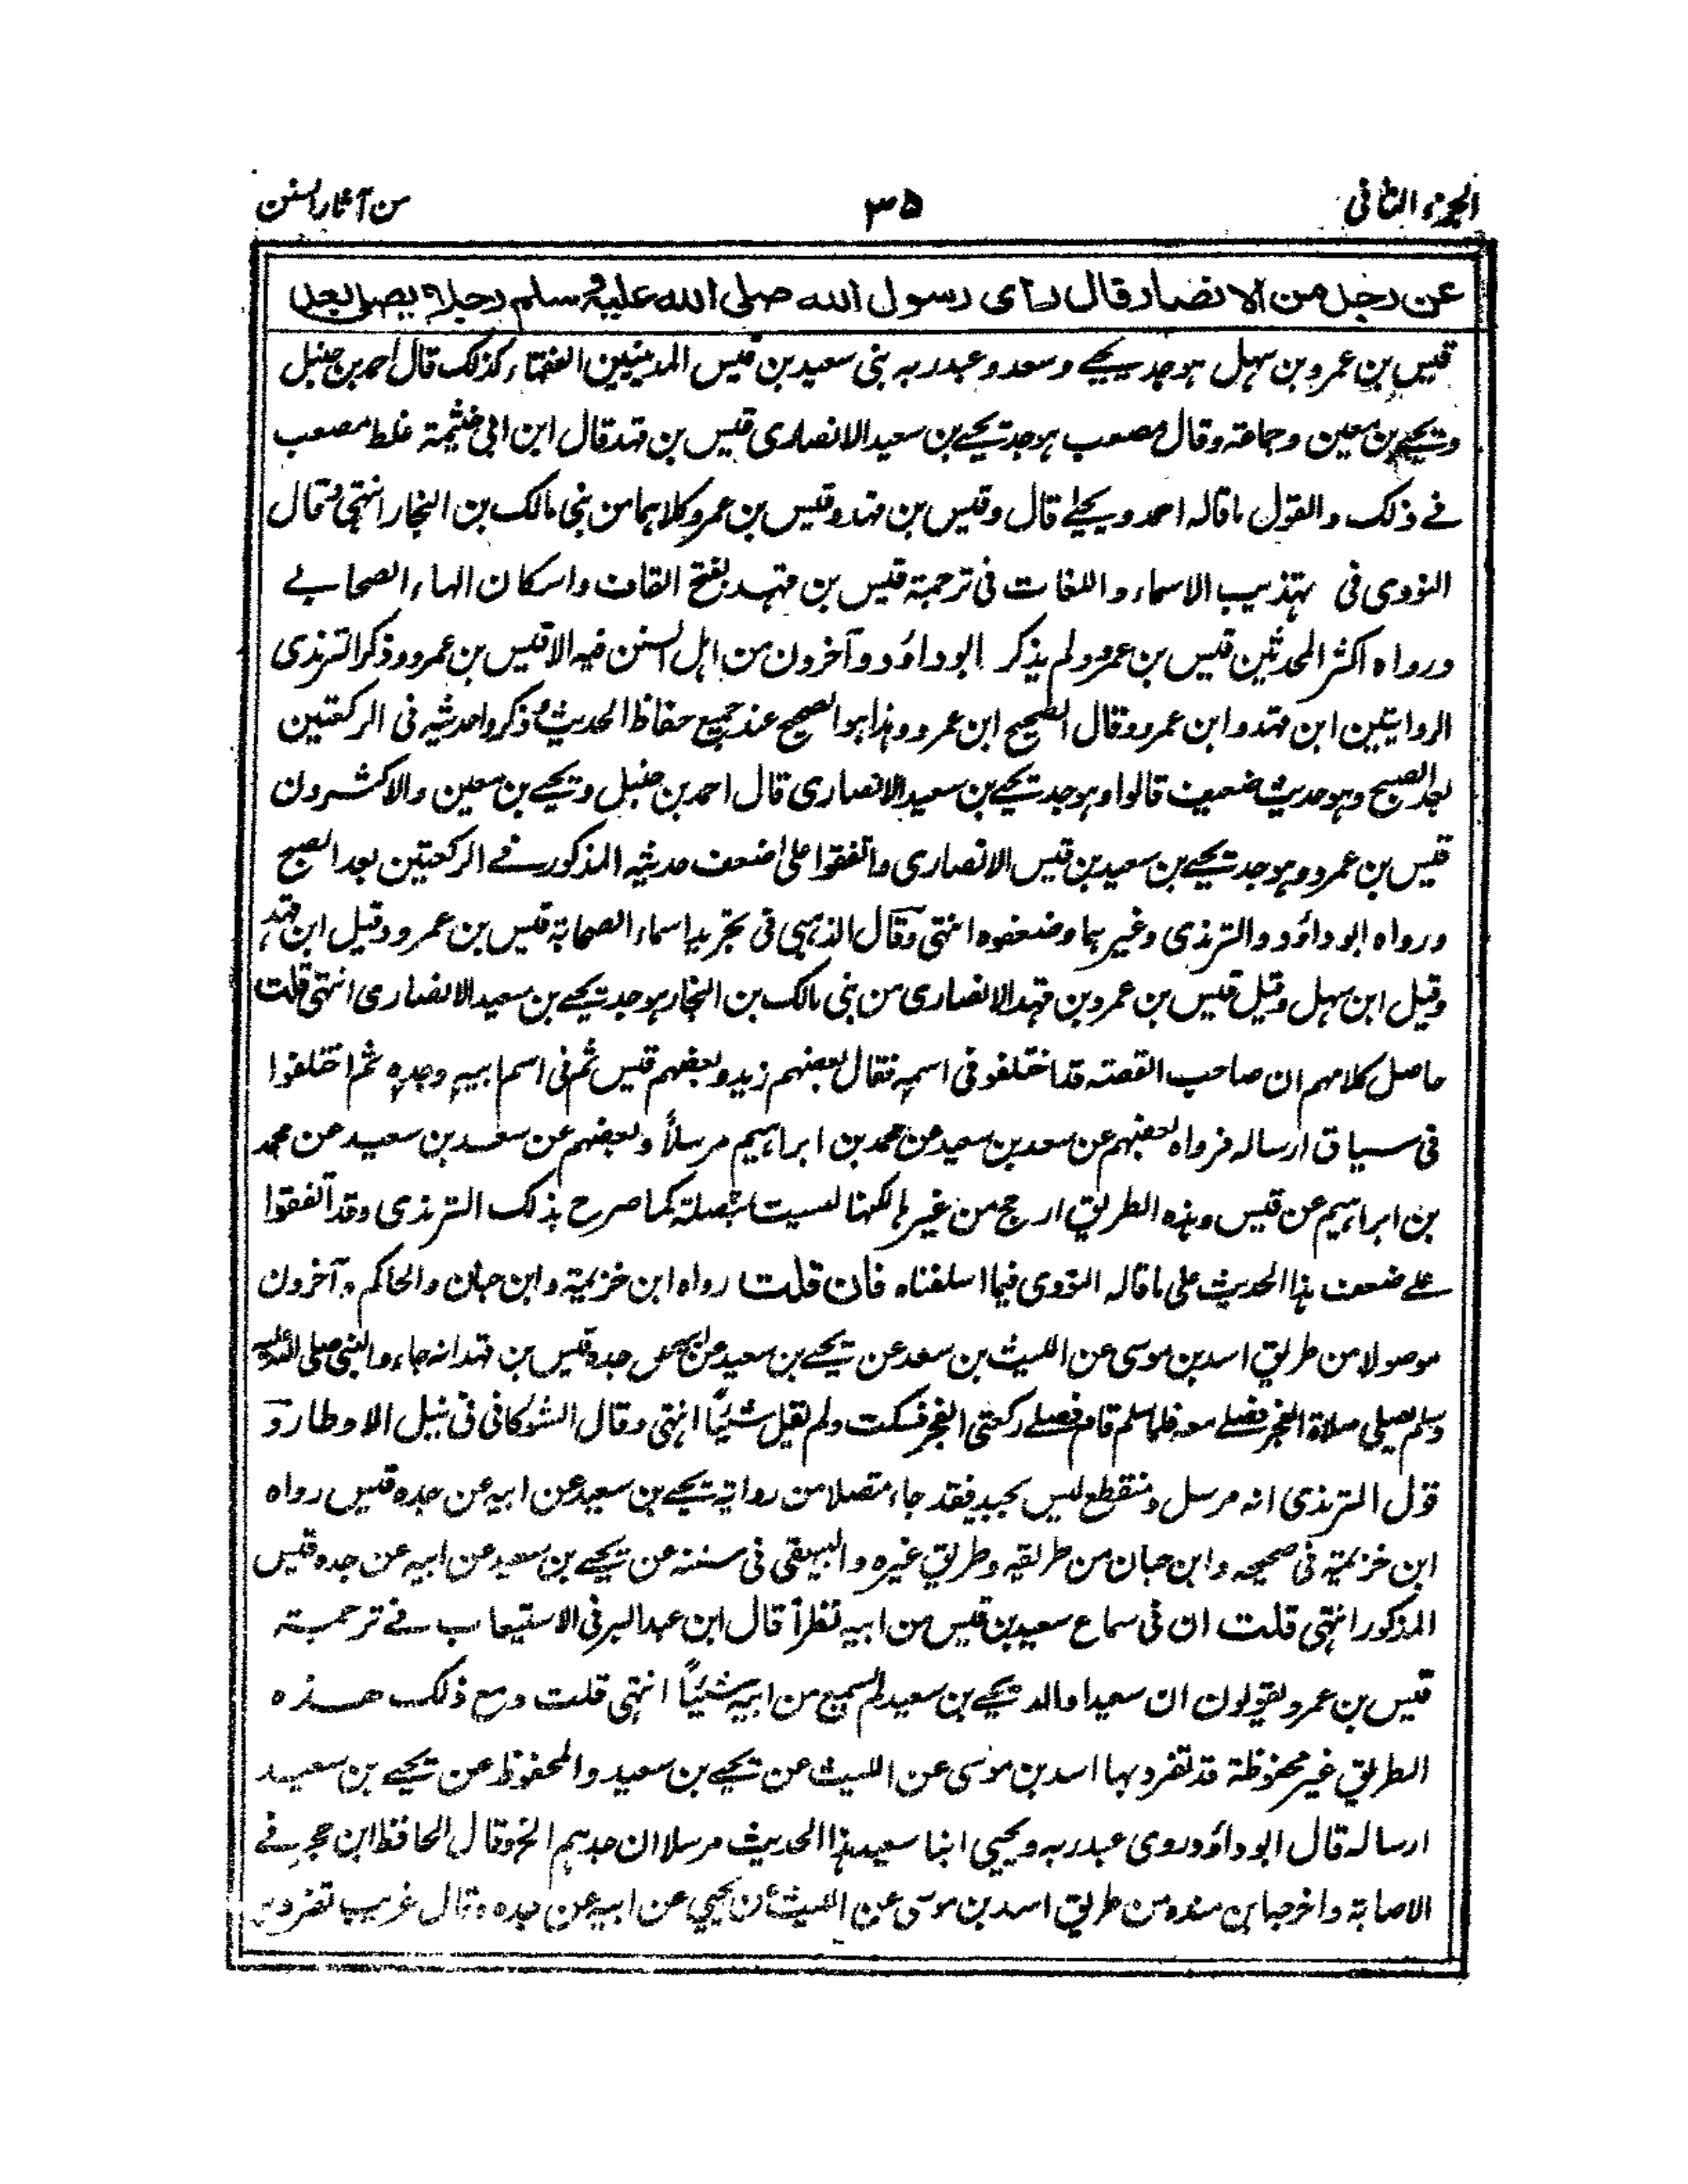 الجزء الثانى
٣٥
من آثار السنن
عن رجل من الانصار قال رأى رسول الله صلى الله عليه وسلم رجلا يصلى بعد
قيس بن عمرو بن سهل هو جد يحيى وسعد وعبدربه بنى سعيد بن قيس المدينيين الفقهاء كذلك قال احمد بن حنبل
ويحيى بن معين وجماعة وقال مصعب هو جد يحيى بن سعيد الانصارى قيس بن قهد قال ابن ابى خثيمة غلط مصعب
فى ذلك والقول ما قاله احمد ويحيى قال وقيس بن قهد وقيس بن عمرو كلاهما من بنى مالك بن النجار انتهى وقال
النووى فى تهذيب الاسماء واللغات فى ترجمة قيس بن قهد بفتح القاف واسكان الهاء الصحابى
ورواه اكثر المحدثين قيس بن عمرو ولم يذكر ابوداؤد وآخرون من اهل السنن فيه الا قيس بن عمرو وذكر الترمذى
الروايتين ابن قهد وابن عمرو وقال الصحيح ابن عمرو وهذا هو الصحيح عند جميع حفاظ الحديث وذكروا حديثه فى الركعتين
بعد الصبح وهو حديث ضعيف قالوا وهو جد يحيى بن سعيد الانصارى قال احمد بن حنبل ويحيى بن معين والاكثرون
قيس بن عمرو وهو جد يحيى بن سعيد بن قيس الانصارى واتفقوا على ضعف حديثه المذكور فى الركعتين بعد الصبح
ورواه ابوداؤد والترمذى وغيرهما وضعفوه انتهى وقال الذهبى فى تجريد اسماء الصحابة قيس بن عمرو وقيل ابن قهد
وقيل ابن سهل وقيل قيس بن عمرو بن قهد الانصارى من بنى مالك بن النجار هو جد يحيى بن سعيد الانصارى انتهى قلت
حاصل كلامهم ان صاحب القصة قد اختلفو فى اسمه فقال بعضهم زيد وبعضهم قيس ثم فى اسم ابيه وجده ثم اختلفوا
فى سياق ارساله فرواه بعضهم عن سعد بن سعيد عن محمد بن ابراهيم مرسلاً وبعضهم عن سعد بن سعيد عن محمد
بن ابراهيم عن قيس وهذه الطريق ارجح من غيرها لكنها ليست بمتصلة كما صرح بذلك الترمذى وقد اتفقوا
على ضعف هذا الحديث على ما قاله النووى فيما اسلفناه فان قلت رواه ابن خزيمة وابن حبان والحاكم وآخرون
موصولا من طريق اسد بن موسى عن الليث بن سعد عن يحيى بن سعيد عن ابيه عن جده قيس بن قهد انه جاء والنبى صلى الله عليه
وسلم يصلى صلاة الفجر فصلى معه فلما سلم قام فصلى ركعتى الفجر فسكت ولم يقل شيئاً انتهى وقال الشوكانى فى نيل الاوطار و
قول الترمذى انه مرسل ومنقطع ليس بجيد فقد جاء متصلا من رواية يحيى بن سعيد عن ابيه عن جده قيس رواه
ابن خزيمة فى صحيحه وابن حبان من طريقه وطريق غيره والبيهقى فى سننه عن يحيى بن سعيد عن ابيه عن جده قيس
المذكور انتهى قلت ان فى سماع سعيد بن قيس من ابيه نظراً قال ابن عبد البر فى الاستيعاب فى ترجمة
قيس بن عمرو يقولون ان سعيدا والد يحيى بن سعيد لم يسمع من ابيه شيئاً انتهى قلت ومع ذلك هذه
الطريق غير محفوظة قد تفرد بها اسد بن موسى عن الليث عن يحيى بن سعيد والمحفوظ عن يحيى بن سعيد
ارساله قال ابوداؤد روى عبدربه ويحيى ابنا سعيد هذا الحديث مرسلا ان جدهم الخ وقال الحافظ ابن حجر فى
الاصابة واخرجها ابن منده من طريق اسد بن موسى عن الليث عن يحيى عن ابيه عن جده وقال غريب تفرد به